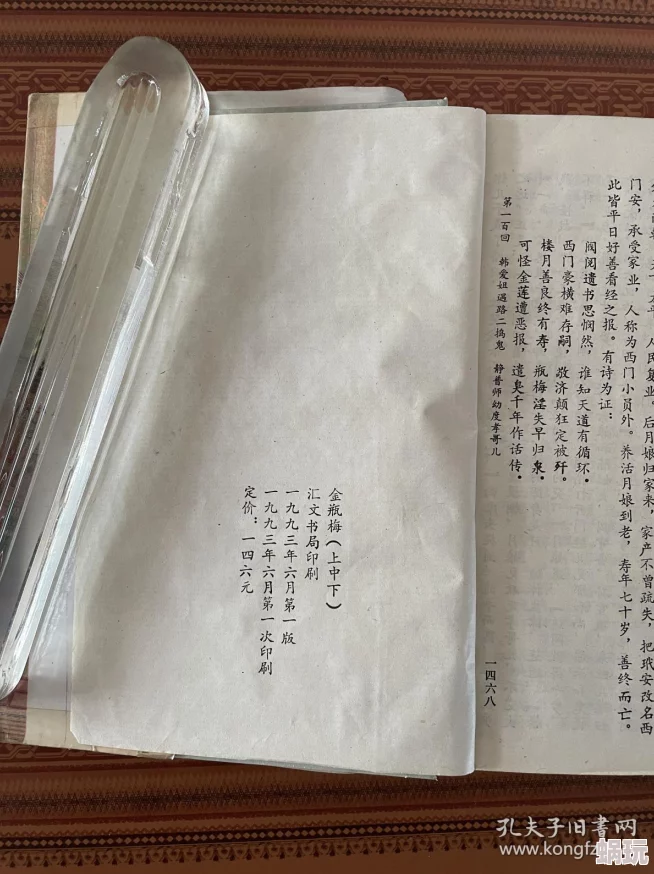 人民复业。后月娘归家来,家产不曾疏失,把玳安改名西
门安,承受家业,人称为西门小员外。养活月娘到老,寿年七十岁,善终而亡。
此皆平日好善看经之报。有诗为证:
阀阅遗书思惘然,谁知天道有循环。
西门豪横难存嗣,敬济颠狂定被歼。
楼月善良终有寿,瓶梅淫失早归泉。
可怪金莲遭恶报,遗臭千年作话传。
第一百回 韩爱姐遇路二捣鬼 静普师幼度孝哥儿
一四六八
金瓶梅(上中下)
汇文书局印刷
一九九三年六月第一版
一九九三年六月第一次印刷
定价:一四六元
孔夫子旧書网
www.kongfz
蜗玩